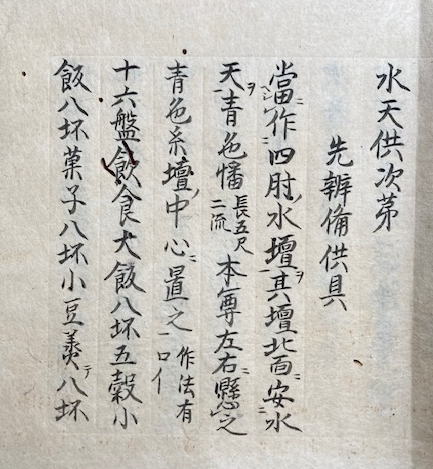 水天供次苐
先辨備供具
當作四肘水壇其壇北面安水
天青色幡長五尺二流本尊左右懸之
青色糸壇中心置之作法有口イ
十六盤飲食大飯八坏五穀小
飯八坏菓子八坏小豆羹八坏